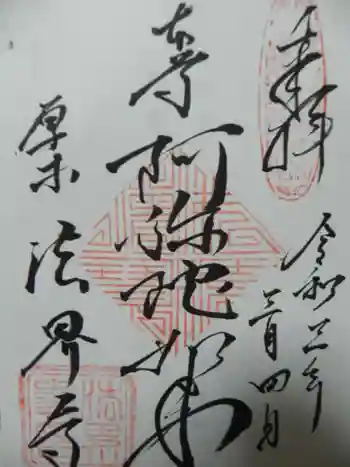 奉拝
令和三年
三月四日
本尊 阿弥陀如来
厚木
法界寺